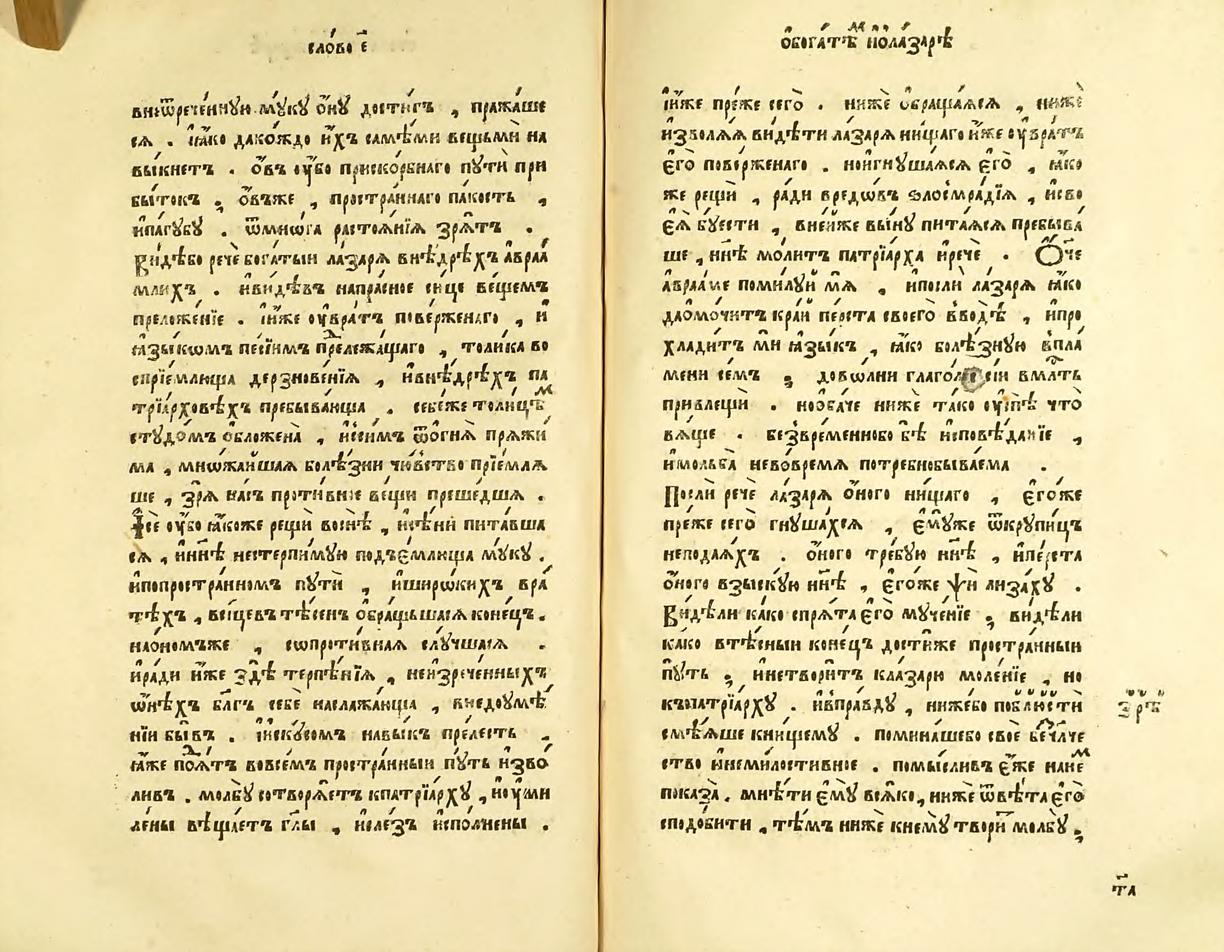 сло́во є҃
внѡⷮрече́ннꙋю мꙋ́кꙋ ѻ҆́нꙋ дости́гъ , пра́жаше
сѧ . ꙗ҆́ко дако́ждо и҆́хъ самѣ́ми вещьмѝ на
вы́кнетъ . ѻ҆́въ ᲂу҆́бо приско́рбнаго пꙋтѝ при
бы́токъ , ѻ҆́въже , простра́ннаго па́кость ,
ипа́гꙋбꙋ . ѿмно́га растоѧ́нїѧ зрѧ́тъ .
Ви́дѣбо речѐ бога́тыи ла́зарѧ внѣ́дрѣхъ а҆враа́
млихъ . иви́дѣвъ напра́сное си́це ве́щемъ
преложе́нїе . і҆́иже ᲂу҆вра́тъ пове́рженаго , и҆
ꙗ҆зы́комъ пе́сїимъ прележа́щаго , толи́ка во
спрїе́млюща дерзнове́нїѧ , ивнѣ́дрѣхъ па
трїа́рховѣхъ пребыва́юща . себе́же толи́цѣⷨ
стꙋдо́мъ ѻ҆бложе́на , исѝмъ ѿогнѧ̀ прѧжи́
ма , мно́жаишаѧ болѣ́зни чю́вство прїе́млѧ
ше , зрѧ̀ на́съ проти́вние ве́щи преше́дшѧ .
І҆сѐ ᲂу҆́бо ꙗ҆́коже рещѝ воснѣ̀ , исѣ́ни пита́вша
сѧ , инн҃ѣ нестерпи́мꙋю подъе́млюща мꙋ́кꙋ .
ипопростра́нномъ пꙋтѝ , иширо́кихъ вра
тѣ́хъ , вещевъ тѣ́сенъ ѻ҆бра́щьшасѧ коне́цъ .
нао́номъже , сопроти́внаѧ слꙋ́чшаѧсѧ .
ира́ди и҆́же здѣ̀ терпѣ́нїѧ , неизрече́нныхъ
ѡ҆нѣ́хъ бл҃гъ себѐ наслажа́юща , внедоꙋмѣ́
нїи бы́въ . і҆иску́сомъ навы́къ пре́лесть ,
ꙗ҆́же поѧ́тъ вовсе́мъ простра́нныи пꙋ́ть изво́
ливъ . молбꙋ̀ сотворѧ́етъ кпатрїа́рхꙋ , иоу҆ми
ле́ны вѣща́етъ гл҃ы , исле́зъ испо́лнены .
ѻ҆бога́тѣⷨ ило́ла́зарѣ
і҆́иже пре́же сего̀ . нижѐ ѻ҆браща́ѧсѧ , нижѐ
изволѧ́ѧ ви́дѣти ла́зарѧ ни́щаго и҆́же ᲂу҆вра́тъ
є҆го̀ пове́рженаго . ноигнꙋша́ѧсѧ є҆го̀ , ꙗ҆́ко
же рещѝ , ра́ди вредо́въ злосмра́дїѧ , исво
еѧ̀ бꙋ́ести , вне́иже вы́нꙋ пита́ѧсѧ пребыва́
ше , нн҃ѣ мо́литъ патрїа́рха иречѐ . Ѻ҆́ч҃е
а҆враа́ме поми́лꙋи мѧ̀ , ипослѝ ла́зарѧ ꙗ҆́ко
даомо́читъ кра́и пе́рста своего̀ вводѣ̀ , ипро
хлади́тъ мѝ ꙗ҆зы́къ , ꙗ҆́ко болѣ́знꙋю впла
мени се́мъ , дово́лни глаго́ли сїи вмл҃ть
привлещѝ . нооба́че нижѐ та́ко ᲂу҆спѣ̀ что̀
вѧ́ще . безвре́меннобо бѣ̀ исповѣ́данїе ,
имольба̀ нево́времѧ потре́бнобыва́ема .
Послѝ речѐ ла́зарѧ ѻ҆́ного ни́щаго , є҆го́же
пре́же сего̀ гнꙋша́хсѧ , є҆мꙋ́же ѿкрꙋпи́цъ
непода́ѧхъ . ѻ҆́ного тре́бꙋю нн҃ѣ , ипе́рста
ѻ҆́ного взы́скꙋю нн҃ѣ , є҆го́же псѝ лиза́хꙋ .
Ви́дѣли ка́ко спрѧ́та є҆го̀ мꙋче́нїе , ви́дѣли
ка́ко втѣ́сныи коне́цъ дости́же простра́нныи
пꙋ́ть , инетвори́тъ кла́зарю моле́нїе , но
къпатрїа́рхꙋ . ивпра́вдꙋ , ни́жебо побли́сти
смѣ́ѧше кни́щемꙋ . помина́шебо своѐ безчл҃че
ство инеми́лостивное . помы́сливъ є҆́же нане́ⷨ
показа̀ . мнѣ́ти є҆мꙋ̀ всѧ́ко , нижѐ ѿвѣ́та є҆го̀
сподо́бити , тѣ́мъ нижѐ кнемꙋ̀ твори́ молбꙋ̀ ,
зрѣ
т҃а